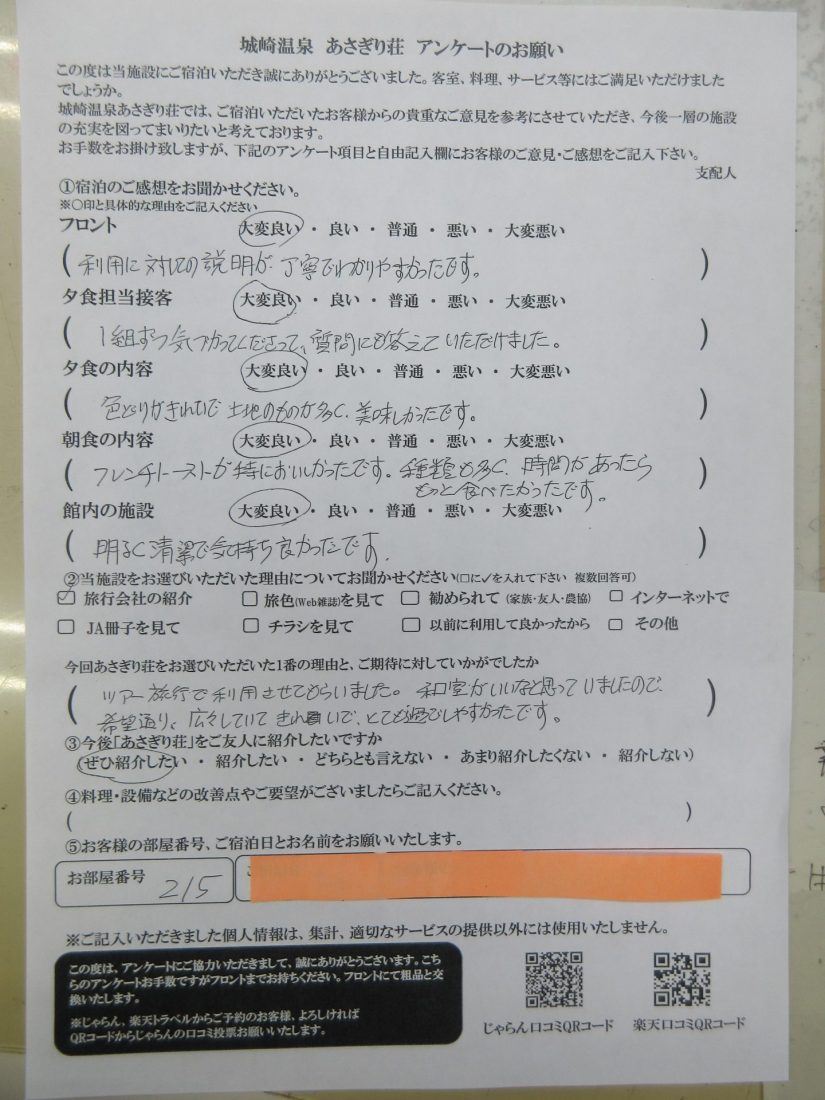 城崎温泉 あさぎり荘 アンケートのお願い
この度は当施設にご宿泊いただき誠にありがとうございました。客室、料理、サービス等にはご満足いただけました
でしょうか。
城崎温泉あさぎり荘では、ご宿泊いただいたお客様からの貴重なご意見を参考にさせていただき、今後一層の施設
の充実を図ってまいりたいと考えております。
お手数をお掛け致しますが、下記のアンケート項目と自由記入欄にお客様のご意見・ご感想をご記入下さい。
支配人
①宿泊のご感想をお聞かせください。
※○印と具体的な理由をご記入ください
フロント 大変良い ・ 良い ・ 普通 ・ 悪い ・ 大変悪い
(利用に対しての説明が丁寧でわかりやすかったです。)
夕食担当接客 大変良い ・ 良い ・ 普通 ・ 悪い ・ 大変悪い
(1組ずつ気づかってくださって、質問にも答えていただけました。)
夕食の内容 大変良い ・ 良い ・ 普通 ・ 悪い ・ 大変悪い
(色どりがきれいで土地のものが多く、美味しかったです。)
朝食の内容 大変良い ・ 良い ・ 普通 ・ 悪い ・ 大変悪い
(フレンチトーストが特においしかったです。種類も多く、時間があったら
もっと食べたかったです。)
館内の施設 大変良い ・ 良い ・ 普通 ・ 悪い ・ 大変悪い
(明るく清潔で気持ち良かったです.)
②当施設をお選びいただいた理由についてお聞かせください(□に✓を入れて下さい 複数回答可)
☑ 旅行会社の紹介 □ 旅色(Web雑誌)を見て □ 勧められて (家族・友人・農協) □ インターネットで
□ JA冊子を見て □ チラシを見て □ 以前に利用して良かったから □ その他
今回あさぎり荘をお選びいただいた1番の理由と、ご期待に対していかがでしたか
(ツアー旅行で利用させてもらいました。和室がいいなと思っていましたので、
希望通り、広々していてきれいで、とても過ごしやすかったです。)
③今後「あさぎり荘」をご友人に紹介したいですか
(ぜひ紹介したい ・ 紹介したい ・ どちらとも言えない ・ あまり紹介したくない ・ 紹介しない)
④料理・設備などの改善点やご要望がございましたらご記入ください。
( )
⑤お客様の部屋番号、ご宿泊日とお名前をお願いいたします。
お部屋番号 215
※ご記入いただきました個人情報は、集計、適切なサービスの提供以外には使用いたしません。
この度は、アンケートにご協力いただきまして、誠にありがとうございます。こち
らのアンケートお手数ですがフロントまでお持ちください。フロントにて粗品と交
換いたします。
※じゃらん、楽天トラベルからご予約のお客様、よろしければ
QRコードからじゃらんの口コミ投票お願いいたします。
じゃらん口コミQRコード 楽天口コミQRコード